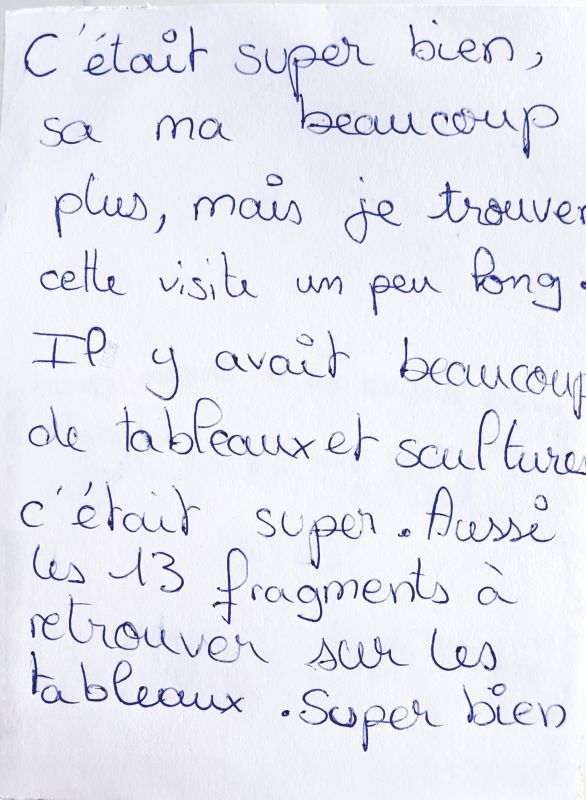 C'était super bien,
sa ma beaucoup
plus, mais je trouver
cette visite un peu long.
Il y avait beaucoup
de tableaux et sculptures
c'était super. Aussi
les 13 fragments à
retrouver sur les
tableaux. Super bien